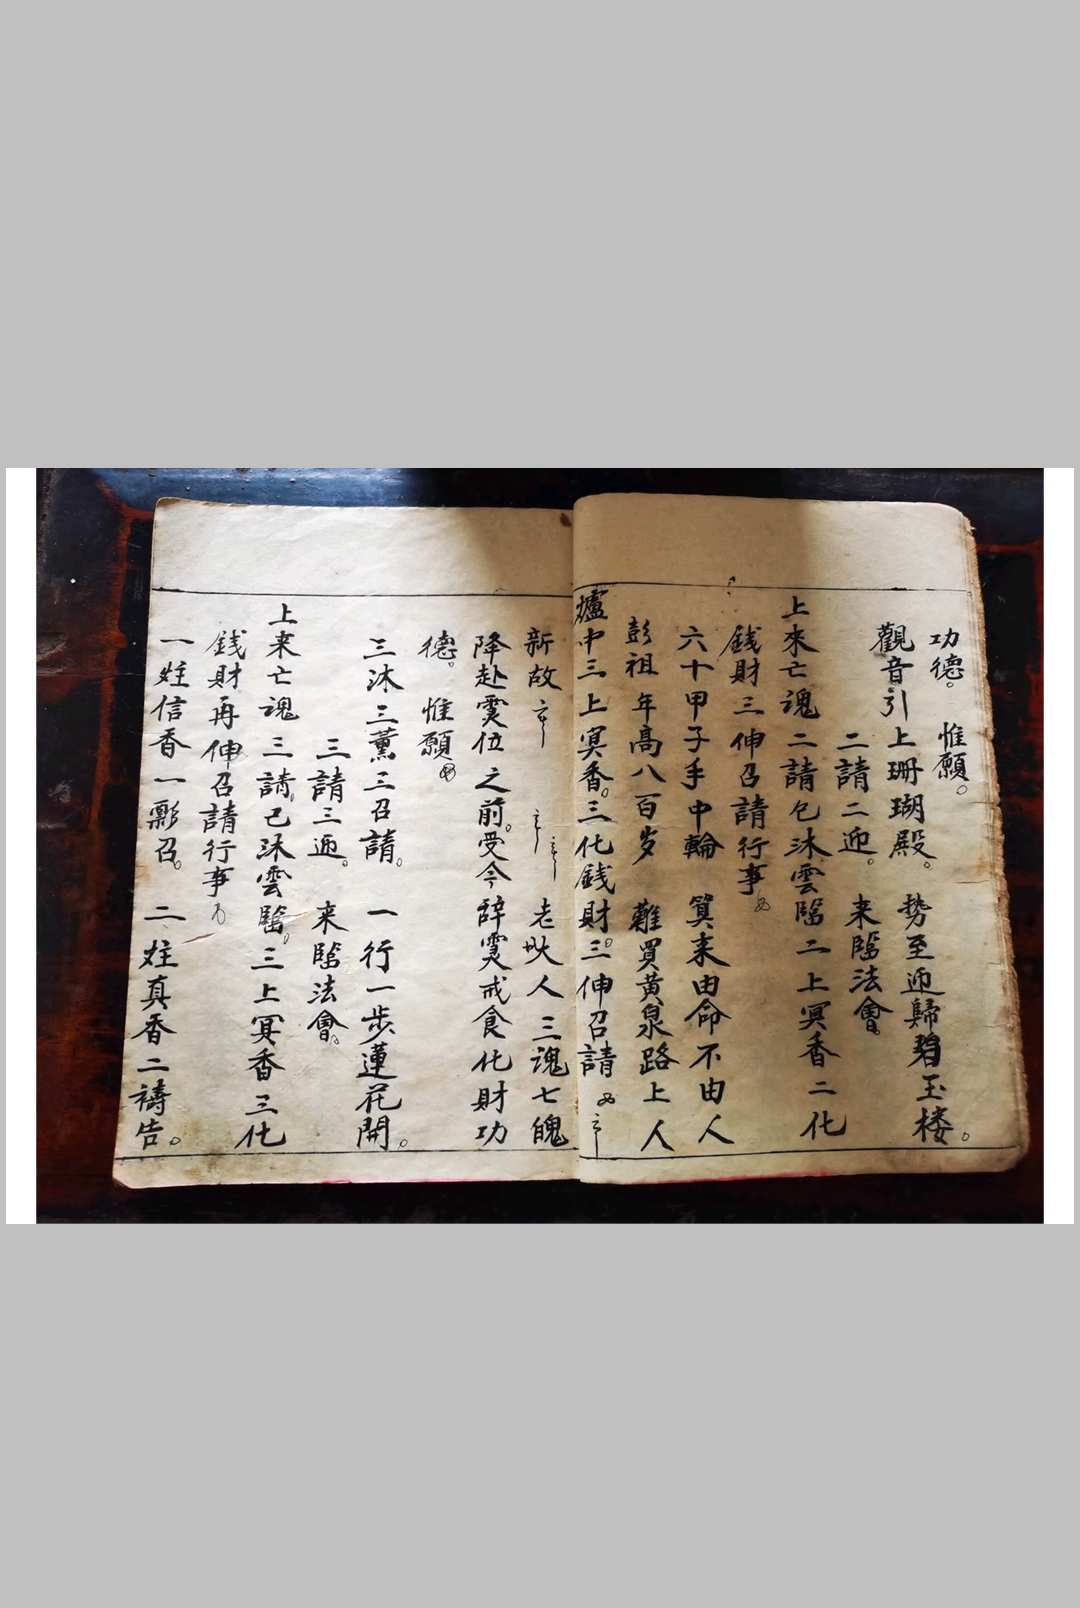 功德。惟願。
觀音引上珊瑚殿。勢至迎歸碧玉楼。
二請二迎。来臨法會。
上來亡魂二請已沐雲臨二上冥香二化
錢財三伸召請行事
六十甲子手中輪 算来由命不由人
彭祖年高八百岁 難買黄泉路上人
爐中三上冥香。三化錢財。三伸召請
新故 老 人三魂七魄
降赴灵位之前。受今辞灵戒食化財功
德。惟願
三沐三薰三召請。一行一步蓮花開。
三請三迎。来臨法會。
上来亡魂三請。已沐雲臨。三上冥香三化
錢財再伸召請行事
一炷信香一 召。二炷真香二禱告。